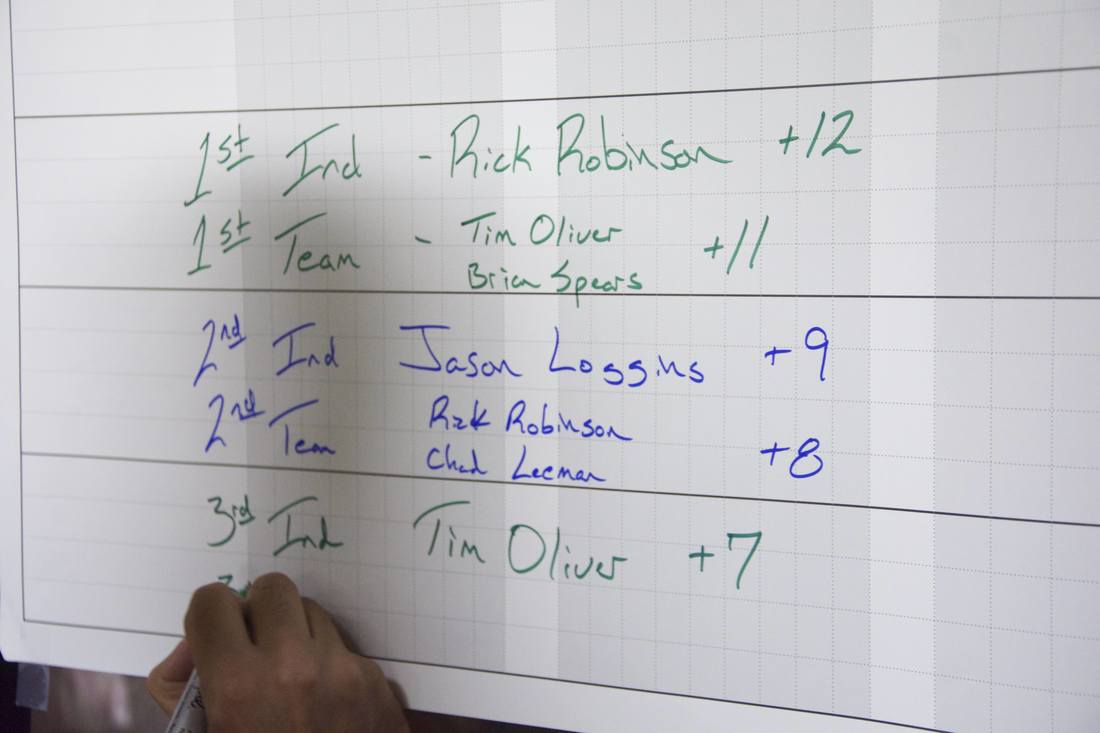 1st Ind - Rick Robinson +12
1st Team - Tim Oliver +11
Brian Spears
2nd Ind Jason Loggins +9
2nd Team Rick Robinson +8
Chad Leeman
3rd Ind Tim Oliver +7